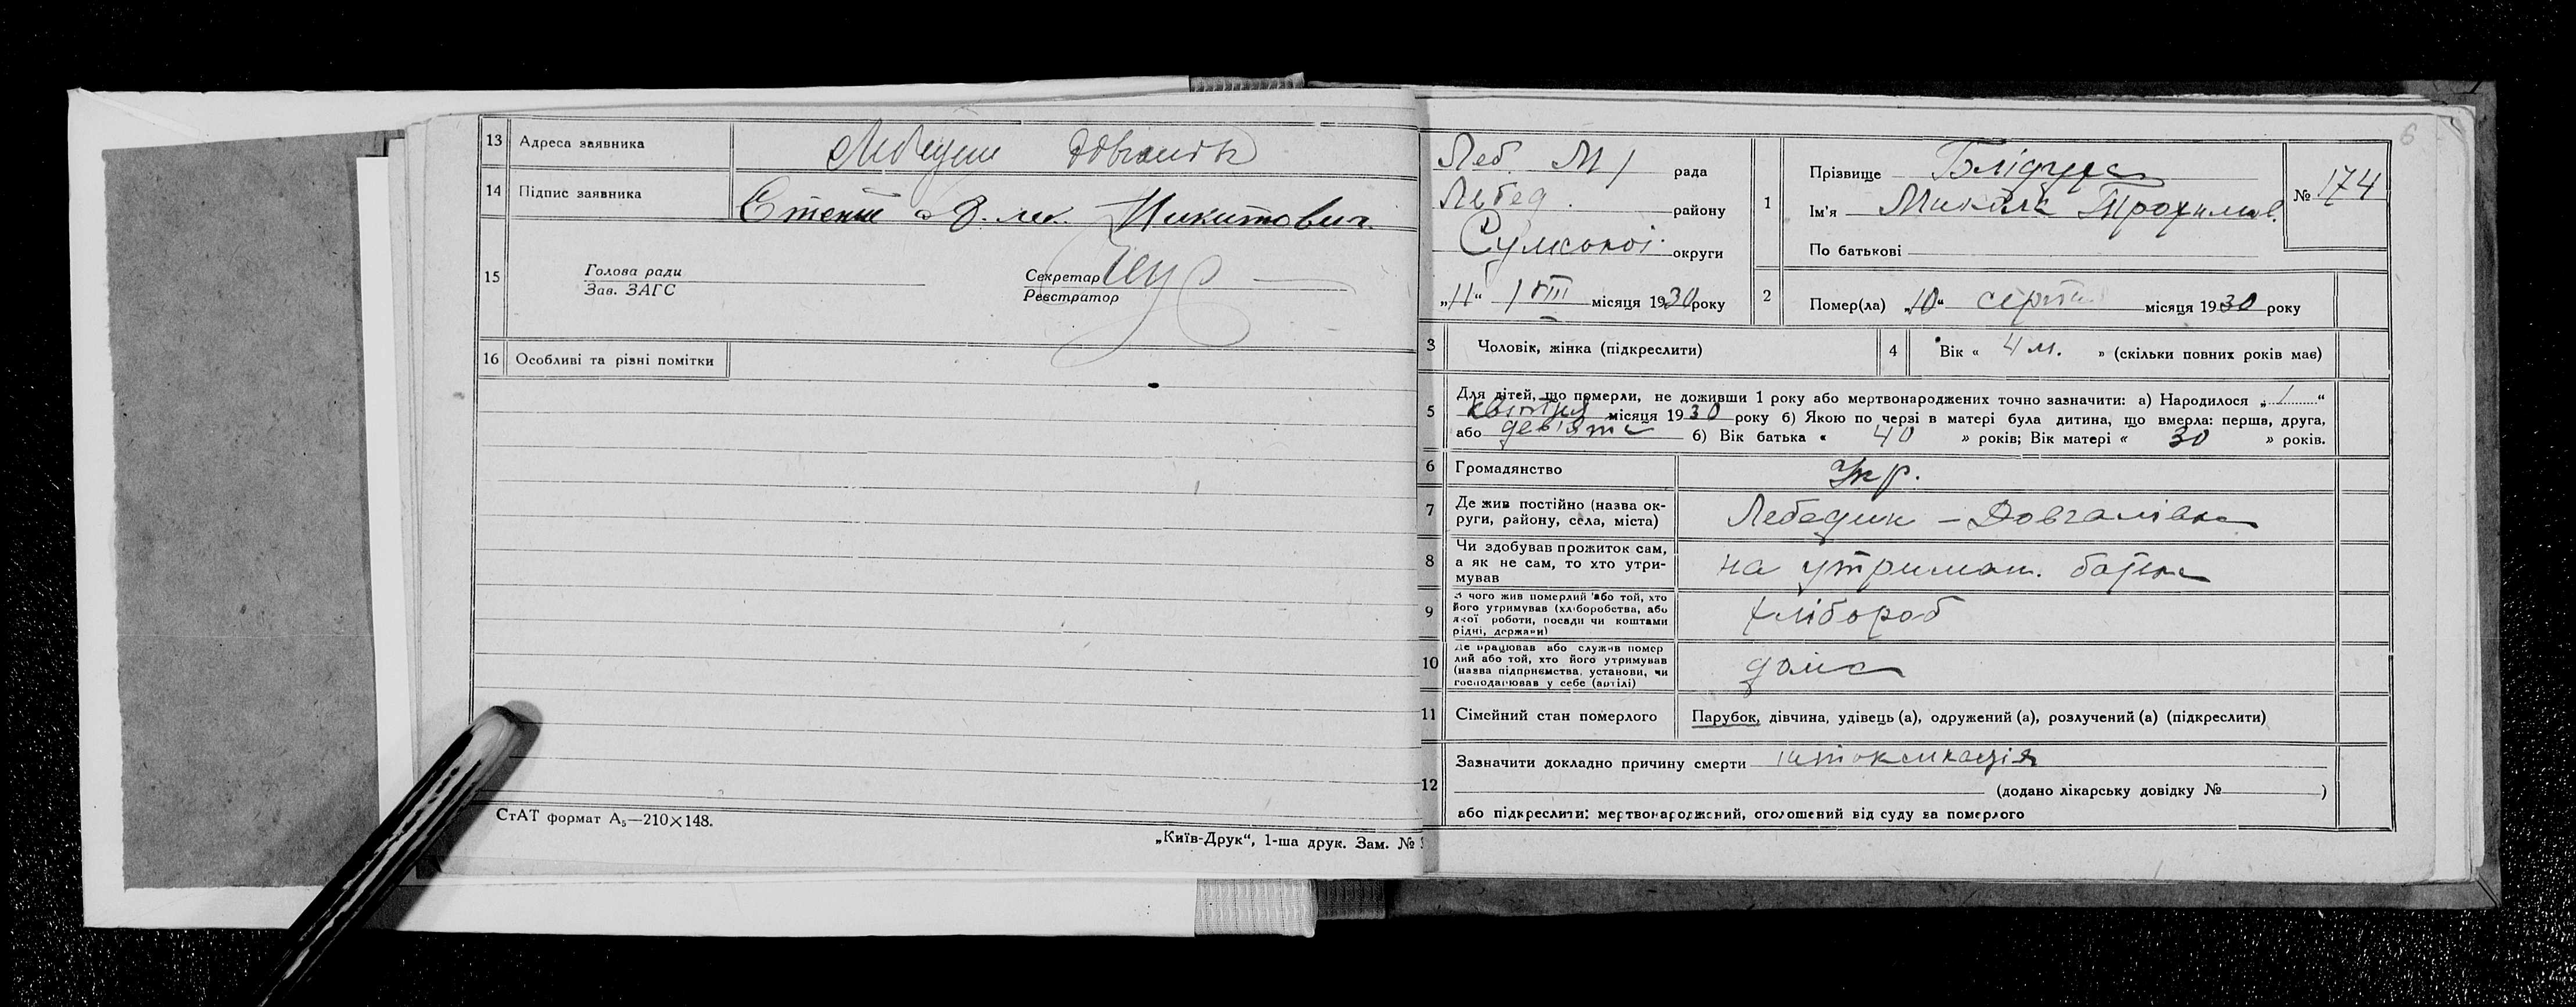 13 Адреса заявника
14 Підпис заявника
Никитович
15 Голова ради
Зав. ЗАГС
Секретар
Реєстратор
16 Особливі та різні помітки
СтАТ формат А5—210×148.
„Київ-Друк“, 1-ша друк. Зам. №
6
Леб. М рада
Лебед. району
Сумської округи
„11“ VIII місяця 1930 року
1 Прізвище
Ім'я Микола Трохимов.
По батькові
№ 174
2 Помер(ла) „10“ серпня місяця 1930 року
3 Чоловік, жінка (підкреслити)
4 Вік « 4 м. » (скільки повних років має)
5 Для дітей, що померли, не доживши 1 року або мертвонароджених точно зазначити: а) Народилося „1“
квітня місяця 1930 року б) Якою по черзі в матері була дитина, що вмерла: перша, друга,
або дев'ята б) Вік батька « 40 » років; Вік матері « 30 » років.
6 Громадянство Укр.
7 Де жив постійно (назва ок-
руги, району, села, міста)
Лебедин — Довгалівка
8 Чи здобував прожиток сам,
а як не сам, то хто утри-
мував
на утриман. батька
9 З чого жив померлий або той, хто
його утримував (хліборобства, або
якої роботи, посади чи коштами
рідні, держави)
хлібороб
10 Де працював або служив помер
лий або той, хто його утримував
(назва підприємства, установи, чи
господарював у себе (артілі)
дома
11 Сімейний стан померлого
Парубок, дівчина, удівець (а), одружений (а), розлучений (а) (підкреслити)
12 Зазначити докладно причину смерти інтоксикація
(додано лікарську довідку № )
або підкреслити: мертвонароджений, оголошений від суду за померлого